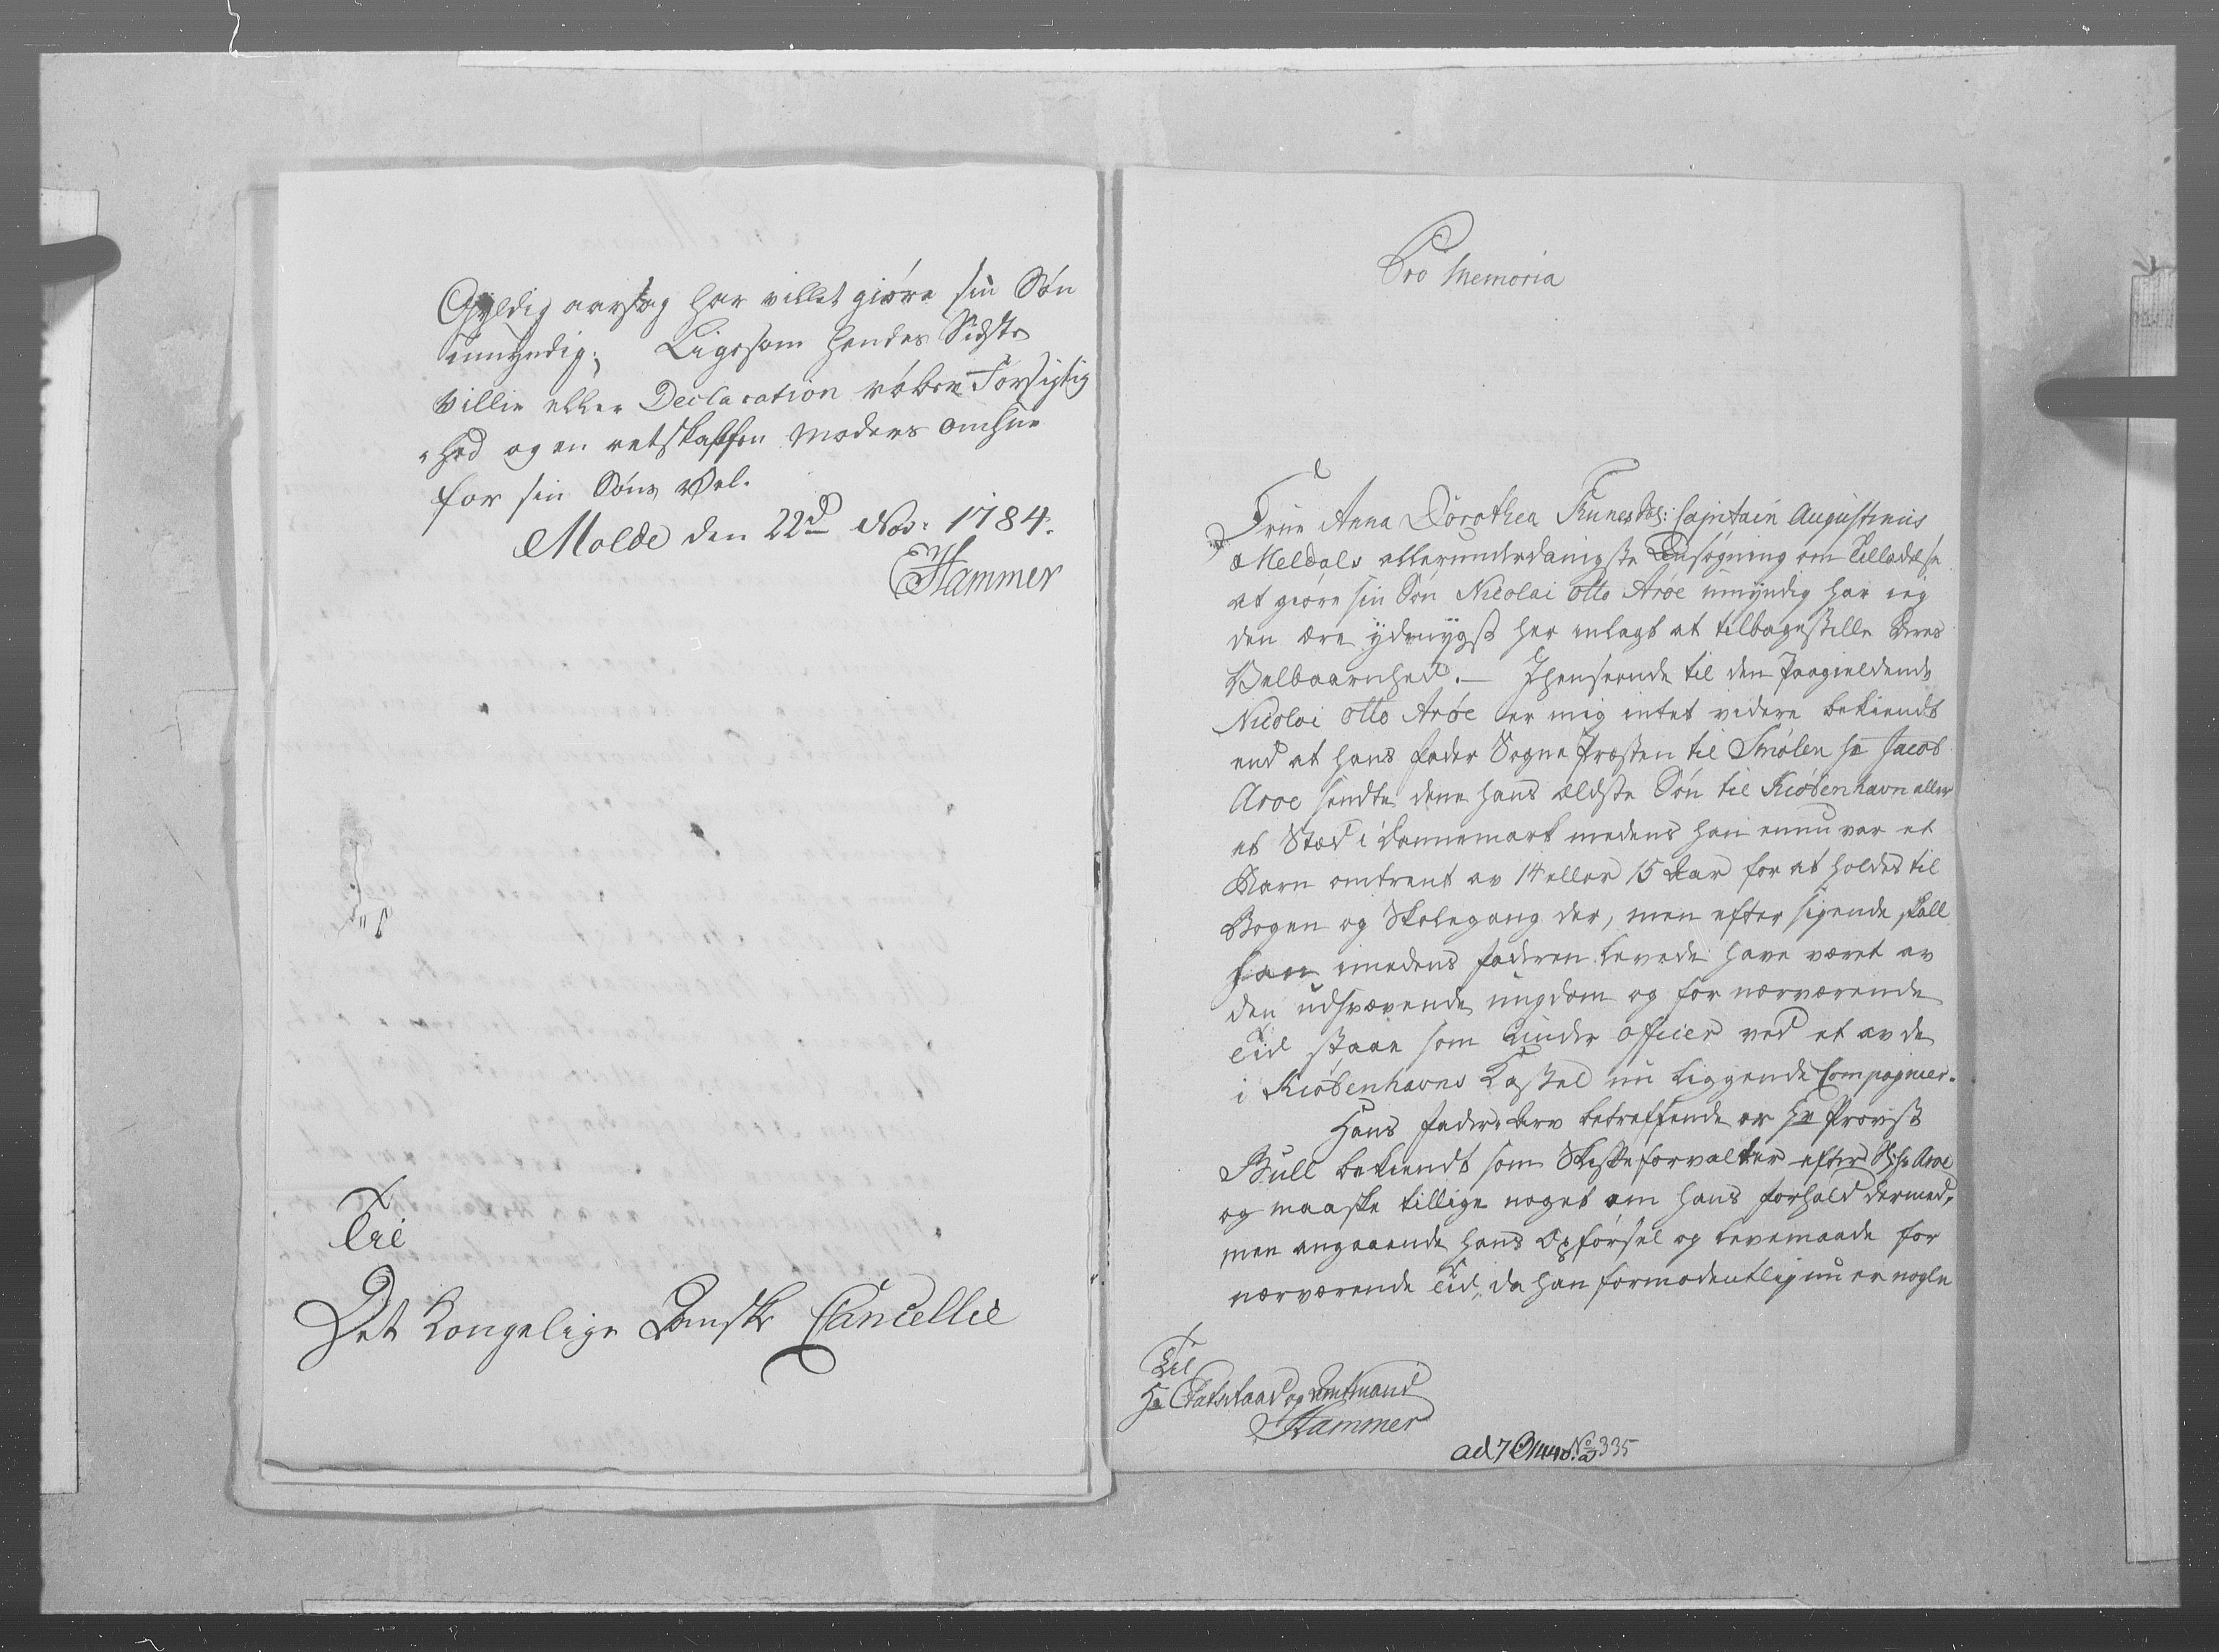 Gyldig aarsag har villet giøre sin Søn
umyndig; Ligesom hendes Sidste
Villie eller Declaration røber Forsigtig
hed og en retskaffen Moders omhue
for sin Søns Vel.
Molde den 22de Nov: 1784.
Hammer
Til
Det Kongelige Danske Cancellie
Pro Memoria
Frue Anna Dorothea Sal: Capitain Augustinus
Meldals allerunderdanigste Ansøgning om Tilladelse
at giøre sin Søn Nicolai Otto Arøe umyndig har ieg
den ære ydmygst her inlagt at tilbagestille Deres
Velbaarnhed. — Ihenseende til den Paagieldende
Nicolai Otto Arøe er mig intet videre bekiendt
end at hans fader Sogne Præsten til Smølen Hr Jacob
Aroe sendte dene hans ældste Søn til Kiøbenhavn eller
et Stæd i Dannemark medens han ennu var et
Barn omtrent av 14 eller 15 Aar for at holdes til
Bogen og Skolegang der, men efter sigende skall
han imedens faderen levede have været av
den udsvævende ungdom og for nærværende
Tid staae som Under officer ved et av de
i Kiøbenhavns Castel nu liggende Compagnier.
Hans fædrene Arv betreffende er Hr Provst
Bull bekiendt som Skifteforvalter efter S: Hr Aroe
og maaske tillige noget om hans forhold dermed,
men angaaende hans Opførsel og levemaade for
nærværende Tid, da han formodentlig nu er nogle
Til
Hr Etatsraad og Amtmand
Hammer
ad No 335